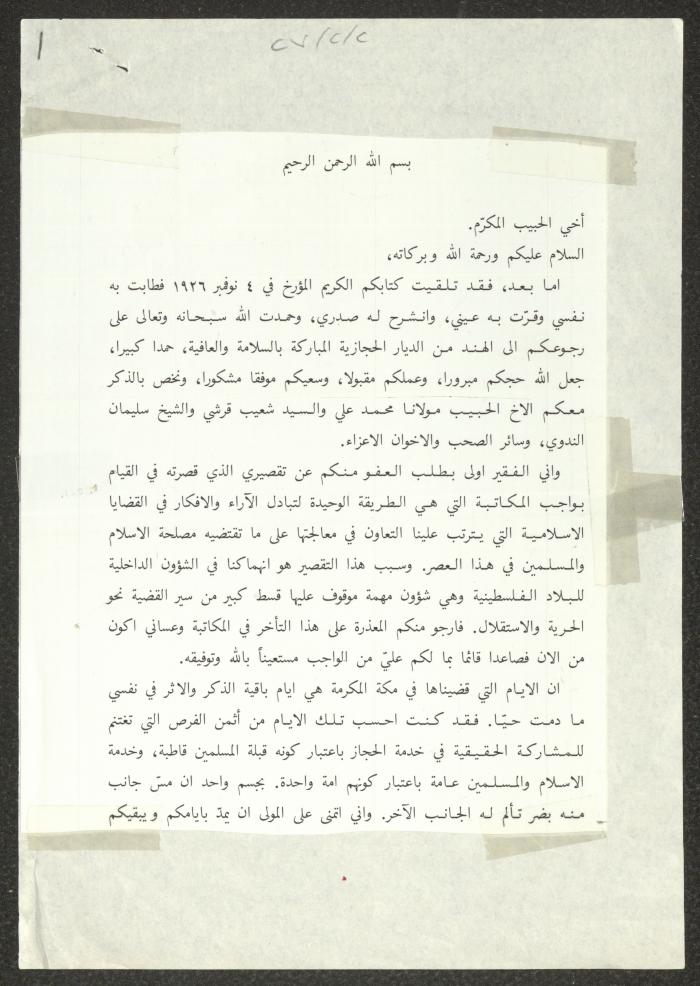 بسم الله الرحمن الرحيم
أخي الحبيب المكرّم.
السلام عليكم ورحمة الله وبركاته،
اما بعد، فقد تلقيت كتابكم الكريم المؤرخ في ٤ نوفمبر ١٩٢٦ فطابت به
نفسي وقرّت به عيني، وانشرح له صدري، وحمدت الله سبحانه وتعالى على
رجوعكم الى الهند من الديار الحجازية المباركة بالسلامة والعافية، حمدا كبيرا،
جعل الله حجكم مبرورا، وعملكم مقبولا، وسعيكم موفقا مشكورا، ونخص بالذكر
معكم الاخ الحبيب مولانا محمد علي والسيد شعيب قرشي والشيخ سليمان
الندوي، وسائر الصحب والاخوان الاعزاء.
واني الفقير اولى بطلب العفو منكم عن تقصيري الذي قصرته في القيام
بواجب المكاتبة التي هي الطريقة الوحيدة لتبادل الآراء والافكار في القضايا
الاسلامية التي يترتب علينا التعاون في معالجتها على ما تقتضيه مصلحة الاسلام
والمسلمين في هذا العصر. وسبب هذا التقصير هو انهماكنا في الشؤون الداخلية
للبلاد الفلسطينية وهي شؤون مهمة موقوف عليها قسط كبير من سير القضية نحو
الحرية والاستقلال. فارجو منكم المعذرة على هذا التأخر في المكاتبة وعساني اكون
من الان فصاعدا قائما بما لكم عليّ من الواجب مستعيناً بالله وتوفيقه.
ان الايام التي قضيناها في مكة المكرمة هي ايام باقية الذكر والاثر في نفسي
ما دمت حيّا. فقد كنت احسب تلك الايام من أثمن الفرص التي تغتنم
للمشاركة الحقيقية في خدمة الحجاز باعتبار كونه قبلة المسلمين قاطبة، وخدمة
الاسلام والمسلمين عامة باعتبار كونهم امة واحدة. بجسم واحد ان مسّ جانب
منه بضر تألم له الجانب الآخر. واني اتمنى على المولى ان يمدّ بايامكم ويبقيكم